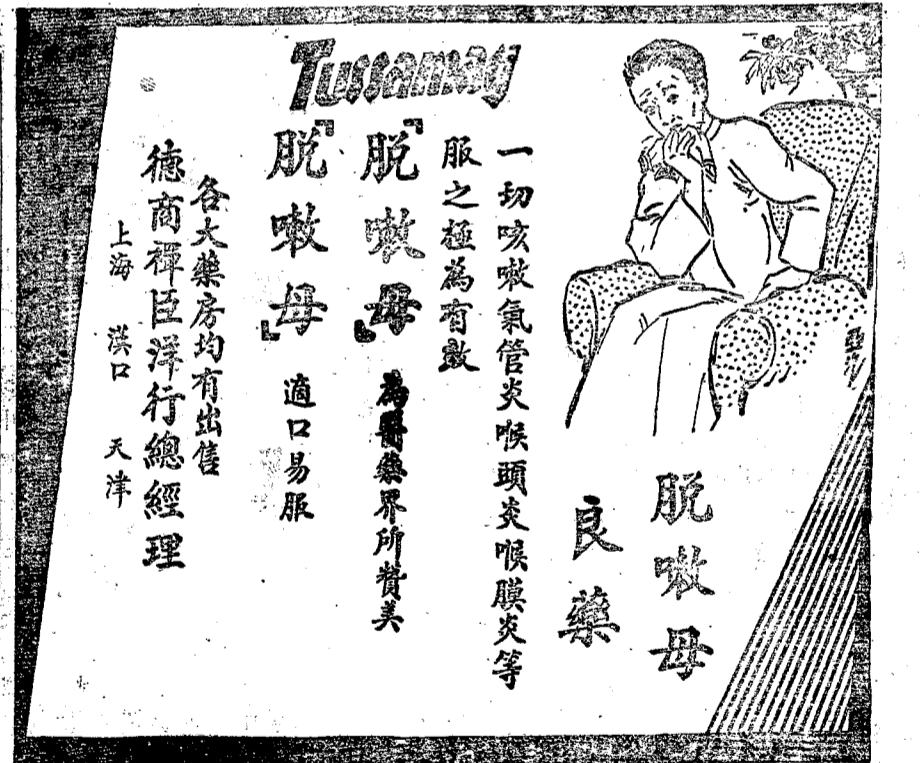 Tussamag
脱嗽母
良藥
一切咳嗽氣管炎喉頭炎喉膜炎等
服之極為有效
『脱嗽母』為醫藥界所贊美
『脱嗽母』適口易服
各大藥房均有出售
德商禪臣洋行總經理
上海 漢口 天津